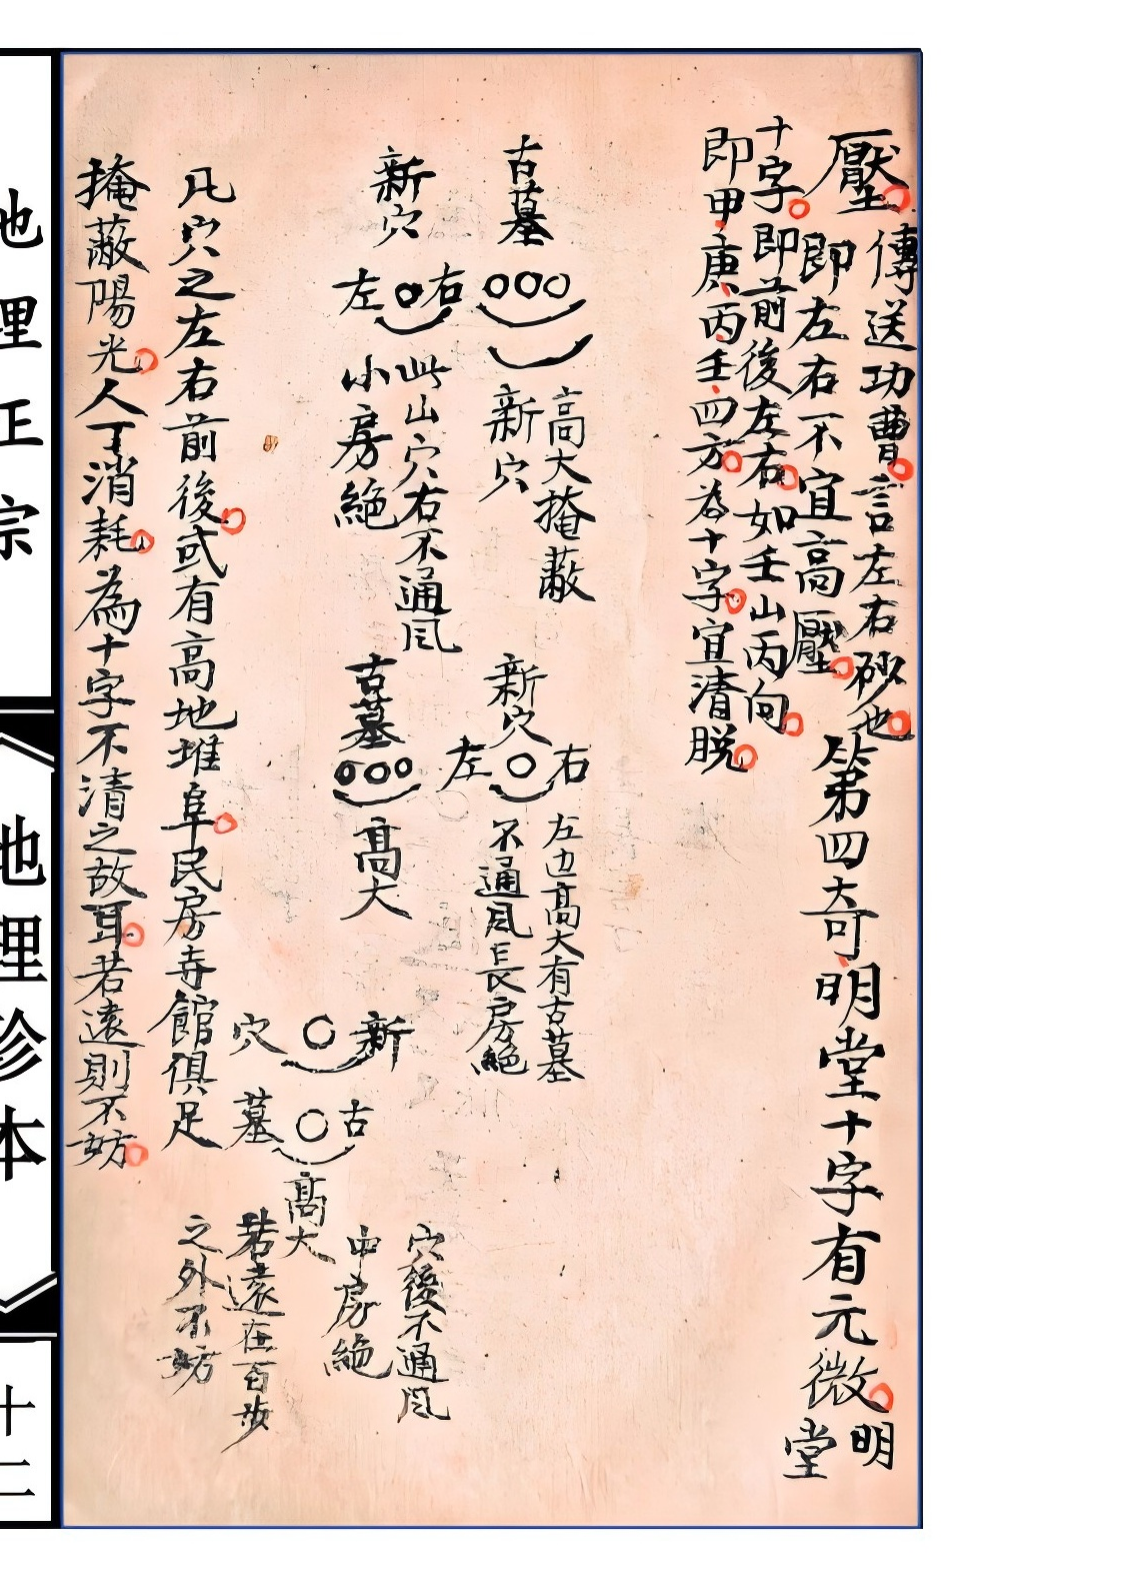 壓
傳送功曹言左右砂也
即左右不宜高壓
第四奇明堂十字有元微
明
堂
十字即前後左右如壬山丙向
即甲庚丙壬四方為十字宜清脫
古墓
高大掩蔽
新穴
新穴
左 右
此山穴右不通风
小房絕
新穴
左 右
左边高大有古墓
不通风長房絕
古墓
高大
新
穴
古
墓
高大
穴後不通风
中房絕
若遠在百步
之外不妨
凡穴之左右前後或有高地堆阜民房寺館俱足
掩蔽陽光人丁消耗為十字不清之故耳若遠則不妨
地理正宗
《地理珍本》
十二